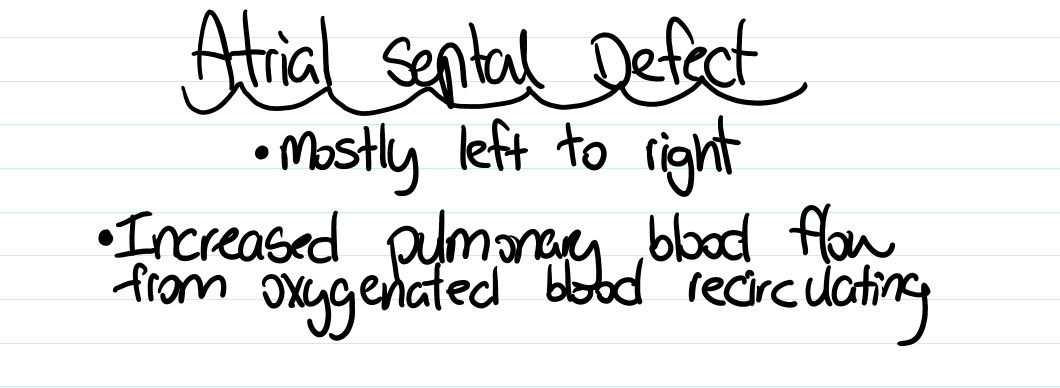 Atrial Septal Defect
• Mostly left to right
• Increased pulmonary blood flow
from oxygenated blood recirculating